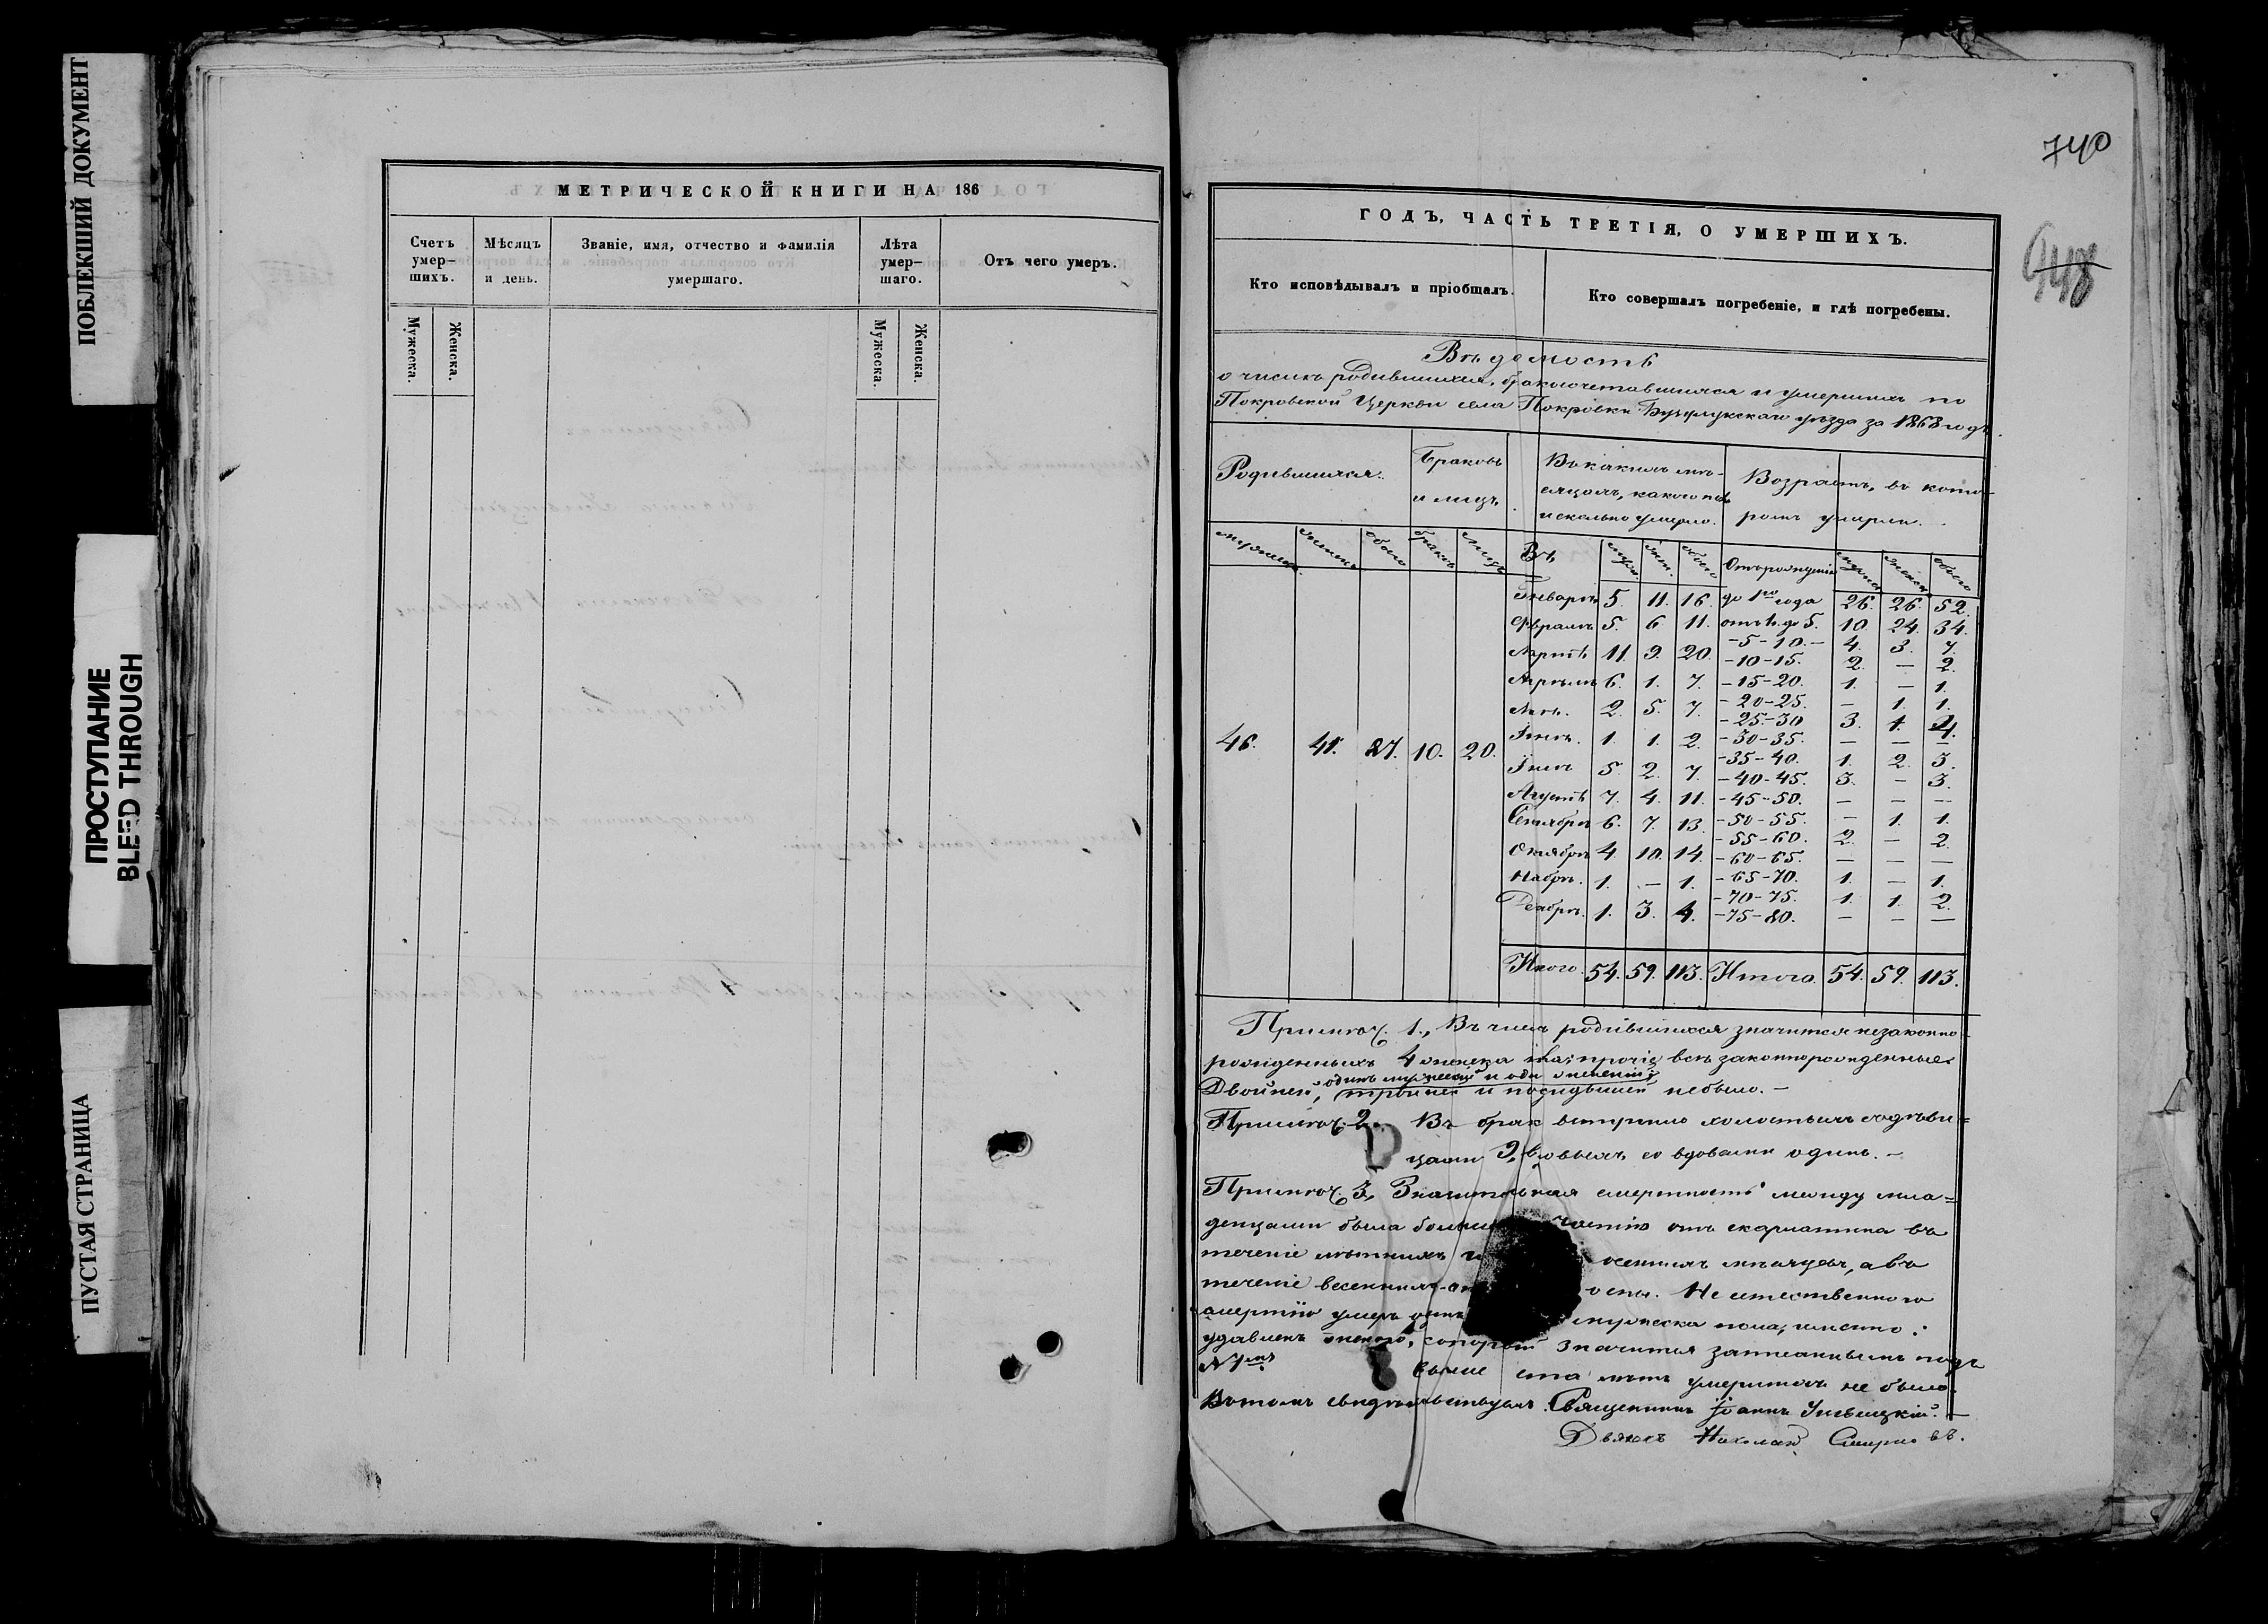 ПОБЛЕКШИЙ ДОКУМЕНТ
ПРОСТУПАНИЕ
BLEED THROUGH
ПУСТАЯ СТРАНИЦА
МЕТРИЧЕСКОЙ КНИГИ НА 186
Счетъ умер-шихъ.
Мѣсяцъ и день.
Званіе, имя, отчество и фамилія умершаго.
Лѣта умер-шаго.
Отъ чего умеръ.
Мужеска. Женска. Мужеска. Женска.
740
948
ГОДЪ, ЧАСТЬ ТРЕТІЯ, О УМЕРШИХЪ.
Кто исповѣдывалъ и пріобщалъ.
Кто совершалъ погребеніе, и гдѣ погребены.
Вѣдомость
о числѣ родившихся, бракосочетавшихся и умершихъ по
Покровской Церкви села Покровки Бузулукскаго уѣзда за 1868 годъ.
Родившихся.
Браковъ
и лицъ.
Въ какихъ мѣ-
сяцахъ, какого пола
и сколько умерло.
Возрастъ, въ кото-
ромъ умерли.
Въ
Отъ рожденія
46. 41. 87. 10. 20.
Январѣ 5. 11. 16. до 1го года 26. 26. 52.
Февралѣ 5. 6 11. отъ 1. до 5. 10. 24. 34.
-5-10.- 4. 3. 7.
Мартѣ 11. 9. 20. -10-15. 2. — 2.
Апрѣлѣ 6. 1. 7. -15-20. 1. — 1.
-20-25. — 1. 1.
Маѣ. 2. 5. 7. -25-30 3. 1. 4.
Іюнѣ. 1. 1. 2. -30-35. — — —
Іюлѣ 5. 2. 7. -35-40. 1. 2. 3.
-40-45. 3. — 3.
Августѣ 7. 4. 11. -45-50. — — —
Сентябрѣ 6. 7. 13. -50-55. — 1. 1.
-55-60. 2. — 2.
Октябрѣ 4. 10. 14. -60-65. — — —
Ноябрѣ. 1. — 1. -65-70. 1. — 1.
-70-75. 1. 1. 2.
Декабрѣ. 1. 3. 4. -75-80. — — —
Итого. 54. 59. 113. Итого. 54. 59. 113.
Примѣч. 1., Въ числѣ родившихся значится незаконно-
рожденныхъ 4 женска прочіе всѣ законнорожденные
одинъ мужескій и одн женскій
Двойней, тройней и не было.—
Примѣч. 2. Въ бракъ вступило холостыхъ съ дѣви=
цами 9, вдовыхъ со вдовами одинъ.—
Примѣч. 3, Значительная смертность между мла=
денцами была частію отъ скарлатина въ
теченіе лѣтнихъ и осеннихъ мѣсяцевъ, а въ
теченіе весеннихъ оспы. Не естественною
смертію умеръ мужеска пола, именно:
удавленъ значится записаннымъ подъ
выше ста лѣтъ умершихъ не было.
Въ томъ свидѣтельствуемъ. Священникъ Іоаннъ
Дьячекъ Николай Смирновъ.